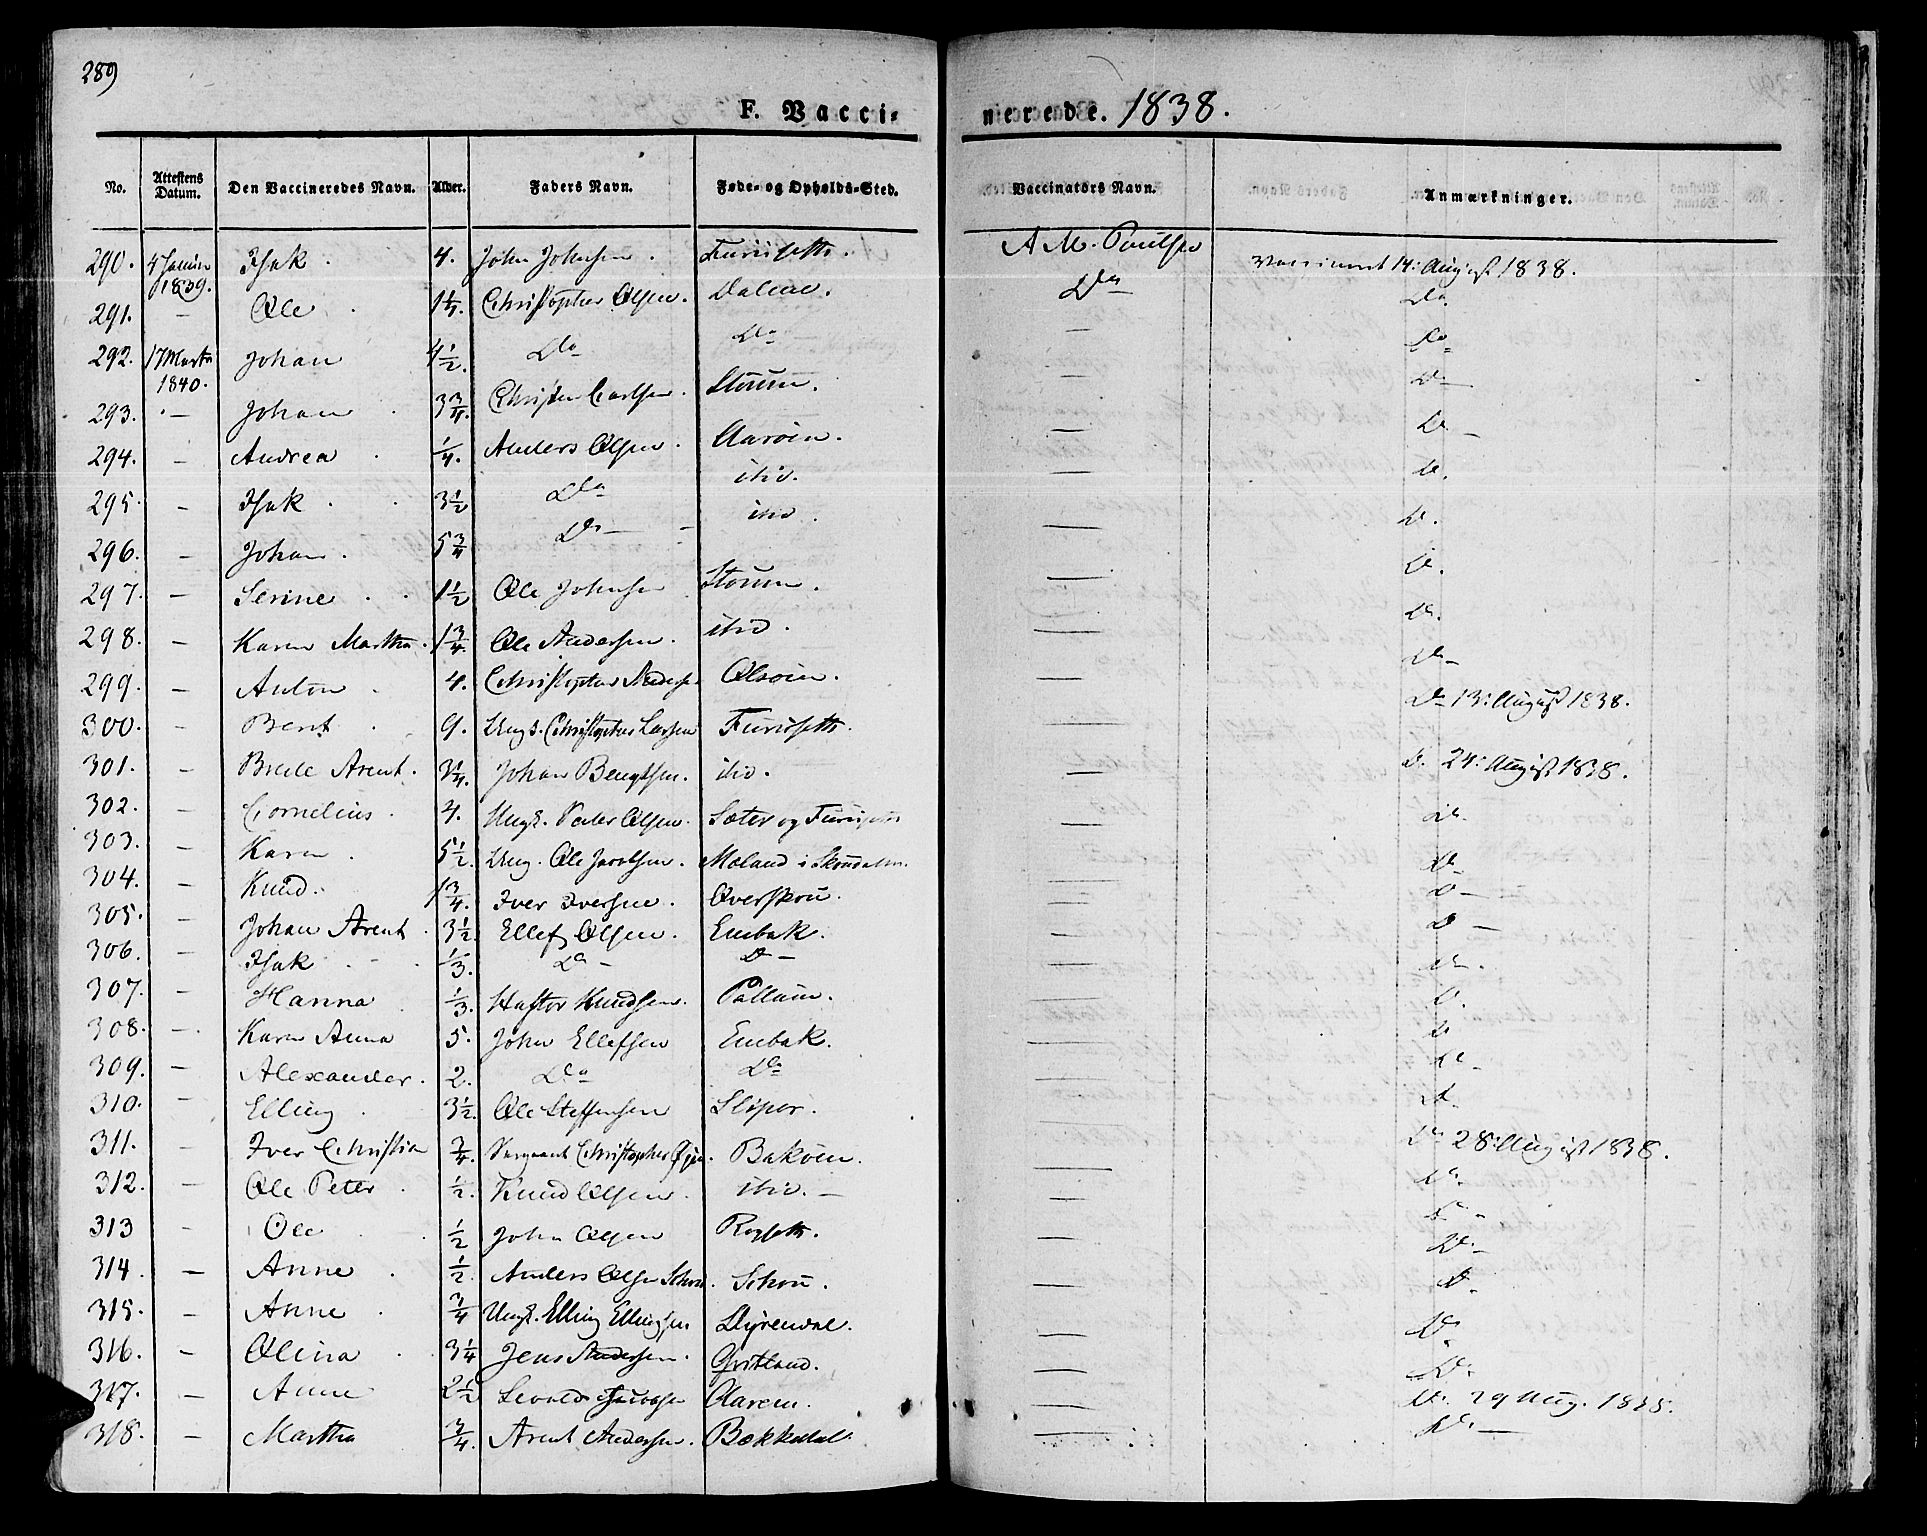 289
F. Vacci- nerede. 1838.
No. Attestens Datum. Den Vaccineredes Navn. Alder. Faders Navn. Føde- og Opholds-Sted. Vaccinators Navn. Anmærkninger.
290. 4 1839. Isak. 4. John Johnsen. A M. Paulsen Vaccineret 14: August 1838.
291. — Ole 1 1/4. Christopher Olsen. Dalene. Do Do
292. 17 Marts 1840. Johan 4 1/2. Do Do — Do
293. — Johan 3 3/4. Christen Carlsen. Stouen. — D—
294. — Andrea 1/4. Anders Olsen. Aaröen. — D. —
295. — Isak 3 1/2 Do ibid. — D.
296. — Johan. 5 3/4 Do — ibid. — D.
297. — Serine 1 1/2 Ole Johnsen Stouen. — D.
298. — Karen Martha. 1 3/4. Ole Andersen. ibid. — D.
299. — Anton 4. Christopher Andersen Olsöien. — D—
300. — Bent 9. Ungk. Christopher Larsen — D— 13: August 1838.
301. — Brede Arent. 3 1/4. Johan Bengtsen. ibid. — D. 24: August 1838.
302. — Cornelius 4. Ungk. Peder Olsen. Sæter og — D.
303. — Karen 5 1/2. Ung. Ole Jacobsen. Mæland i — D—
304. — Knud. 1 3/4. Iver Iversen. Överskou. — D—
305. — Johan Arent 3 1/2. Ellef Olsen. Embak. — D —
306. — Isak 1/3. Do — D — — D.
307. — Hanna 1/3. Haftor Knudsen. — D.
308. — Karen Anna 5. John Ellefsen Embak. — D
309. — Alexander. 2. Do Do — D.
310. — Elling 3 1/2. Ole Steffensen Slipor. — D.
311. — Iver Christian 3/4. Christopher Bakøien. — D. 28: August 1838.
312. — Ole Peter 1/2. Knud Olsen. ibid. — — D.
313 — Ole 1/2 John Olsen — D. -
314. — Anne 1/2. Anders Olsen Skou. — D.—
315. — Anne 3/4 Ungk. Elling Ellingsen Dyrendal. — D.
316. — Olina 3 1/4 Jens Andersen. Gritland. — D.
317. — Anne 2 1/2 Aarem. — D. 29 Aug. 1838.
318. — Martha 3/4. Arent Andersen. Bækkedal. — D. —